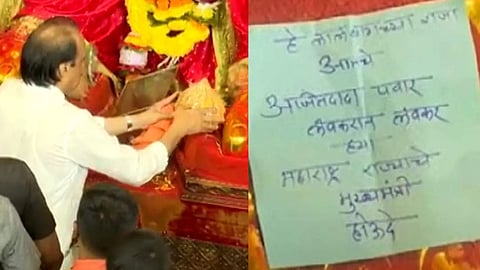 हे लालबागच्या राजा
आमचे
अजितदादा पवार
लवकरात लवकर
ह्या
महाराष्ट्र राज्याचे
मुख्यमंत्री
होऊदे